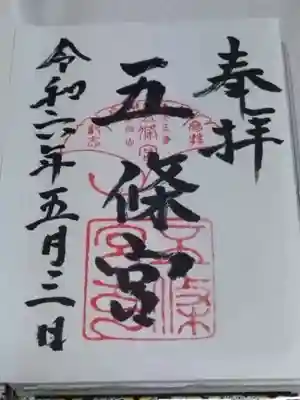 奉拝
五條宮
令和六年五月三日